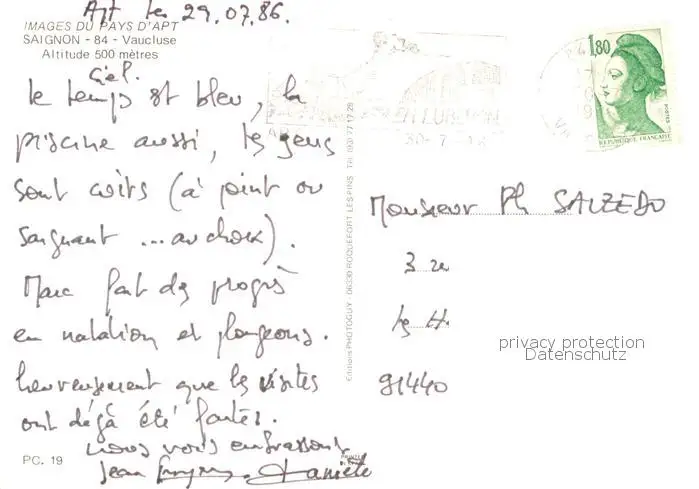 Apt les 29.07.86.
IMAGES DU PAYS D'APT
SAIGNON - 84 - Vaucluse
Altitude 500 mètres
Ciel.
le temps est bleu, la
piscine aussi, les gens
sont cuits (à point ou
saignant ... au choix).
Marc fait des progrès
en natation et plongeons.
heureusement que les visites
ont déjà été faites.
nous vous embrassons
Jean Danièle
PC. 19
Editions PHOTOGUY - 06330 ROQUEFORT LES PINS
EN LUBERON
30-7
1,80
POSTES
REPUBLIQUE FRANÇAISE
Monsieur Ph SALZEDO
3
91440
privacy protection
Datenschutz